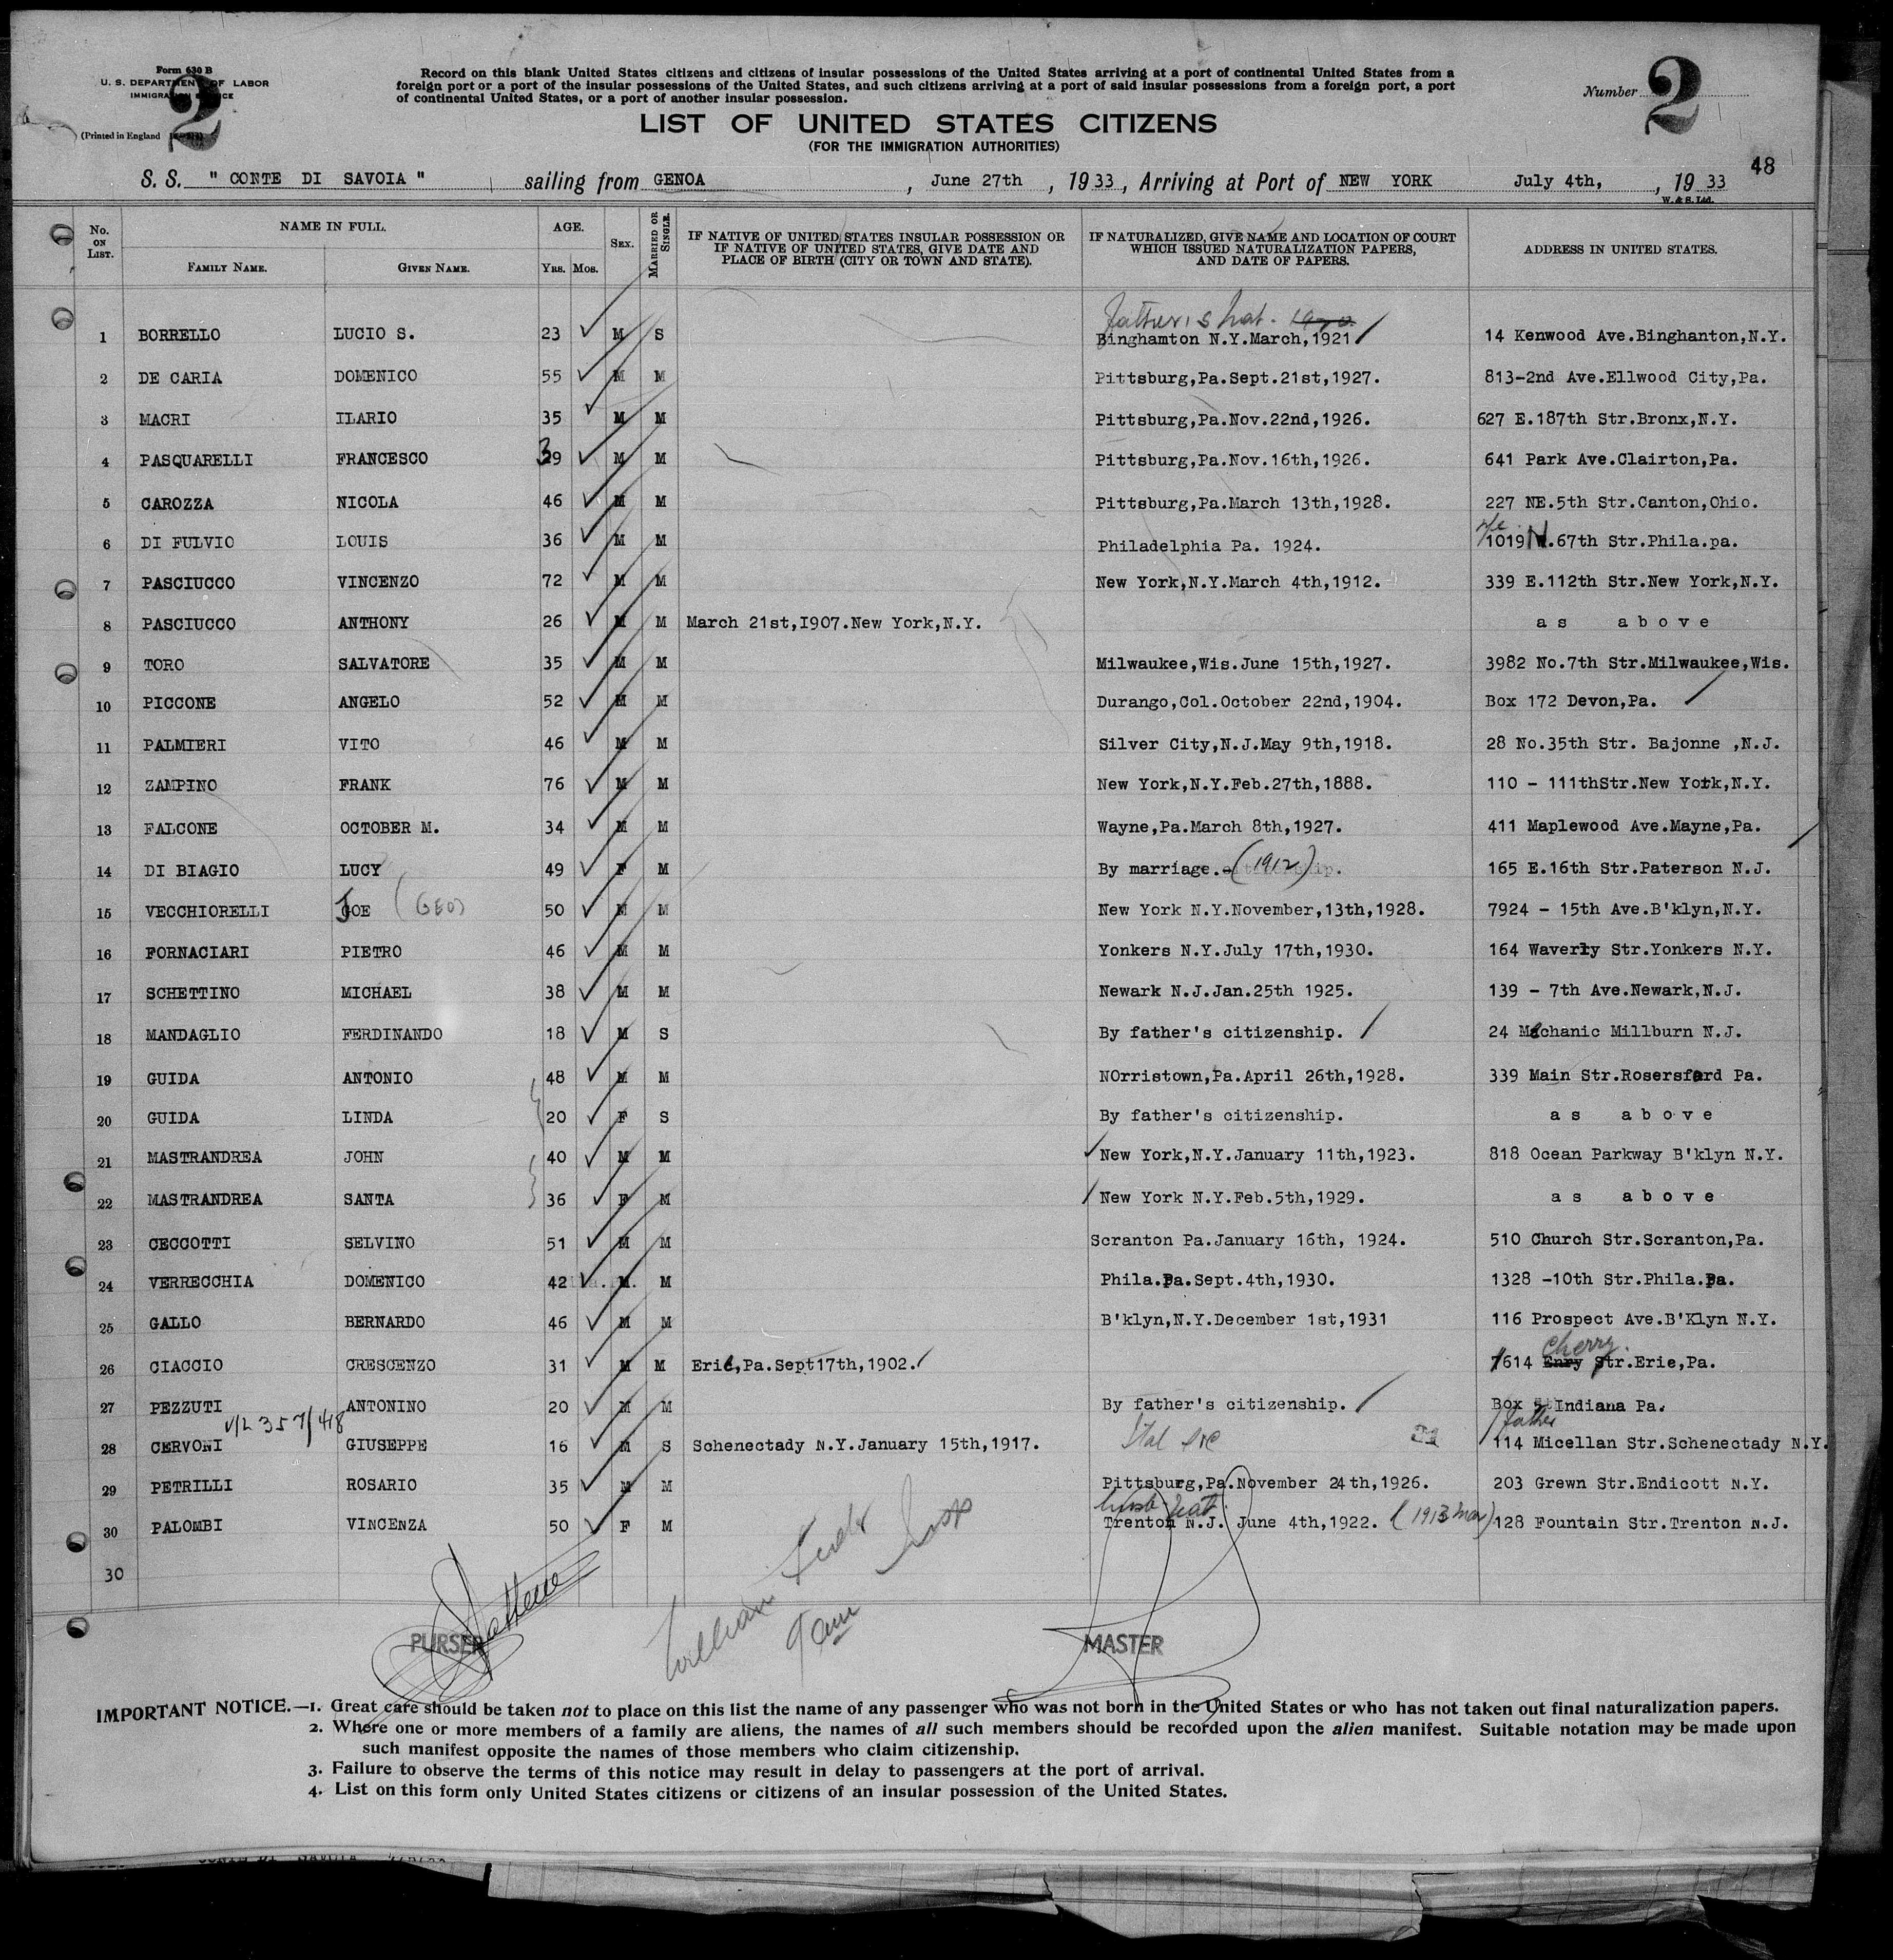 Form 630 B
U. S. DEPARTMENT OF LABOR
IMMIGRATION SERVICE
(Printed in England
2
Record on this blank United States citizens and citizens of insular possessions of the United States arriving at a port of continental United States from a
foreign port or a port of the insular possessions of the United States, and such citizens arriving at a port of said insular possessions from a foreign port, a port
of continental United States, or a port of another insular possession.
Number 2
LIST OF UNITED STATES CITIZENS
(FOR THE IMMIGRATION AUTHORITIES)
48
S. S. " CONTE DI SAVOIA " sailing from GENOA , June 27th , 1933, Arriving at Port of NEW YORK July 4th, , 1933
W. & S. Ltd.
No. ON LIST. NAME IN FULL. FAMILY NAME. GIVEN NAME. AGE. YRS. MOS. SEX. MARRIED OR SINGLE. IF NATIVE OF UNITED STATES INSULAR POSSESSION OR IF NATIVE OF UNITED STATES, GIVE DATE AND PLACE OF BIRTH (CITY OR TOWN AND STATE). IF NATURALIZED, GIVE NAME AND LOCATION OF COURT WHICH ISSUED NATURALIZATION PAPERS, AND DATE OF PAPERS. ADDRESS IN UNITED STATES.
father's nat.
1 BORRELLO LUCIO S. 23 M S Binghamton N.Y.March,1921 14 Kenwood Ave.Binghanton,N.Y.
2 DE CARIA DOMENICO 55 M M Pittsburg,Pa.Sept.21st,1927. 813-2nd Ave.Ellwood City,Pa.
3 MACRI ILARIO 35 M M Pittsburg,Pa.Nov.22nd,1926. 627 E.187th Str.Bronx,N.Y.
4 PASQUARELLI FRANCESCO 39 M M Pittsburg,Pa.Nov.16th,1926. 641 Park Ave.Clairton,Pa.
5 CAROZZA NICOLA 46 M M Pittsburg,Pa.March 13th,1928. 227 NE.5th Str.Canton,Ohio.
6 DI FULVIO LOUIS 36 M M Philadelphia Pa. 1924. 1019 N.67th Str.Phila.pa.
7 PASCIUCCO VINCENZO 72 M M New York,N.Y.March 4th,1912. 339 E.112th Str.New York,N.Y.
8 PASCIUCCO ANTHONY 26 M M March 21st,I907.New York,N.Y. as above
9 TORO SALVATORE 35 M M Milwaukee,Wis.June 15th,1927. 3982 No.7th Str.Milwaukee,Wis.
10 PICCONE ANGELO 52 M M Durango,Col.October 22nd,1904. Box 172 Devon,Pa.
11 PALMIERI VITO 46 M M Silver City,N.J.May 9th,1918. 28 No.35th Str. Bajonne ,N.J.
12 ZAMPINO FRANK 76 M M New York,N.Y.Feb.27th,1888. 110 - 111thStr.New York,N.Y.
13 FALCONE OCTOBER M. 34 M M Wayne,Pa.March 8th,1927. 411 Maplewood Ave.Mayne,Pa.
14 DI BIAGIO LUCY 49 F M By marriage. (1912) 165 E.16th Str.Paterson N.J.
15 VECCHIORELLI JOE (GEO) 50 M M New York N.Y.November,13th,1928. 7924 - 15th Ave.B'klyn,N.Y.
16 FORNACIARI PIETRO 46 M M Yonkers N.Y.July 17th,1930. 164 Waverly Str.Yonkers N.Y.
17 SCHETTINO MICHAEL 38 M M Newark N.J.Jan.25th 1925. 139 - 7th Ave.Newark,N.J.
18 MANDAGLIO FERDINANDO 18 M S By father's citizenship. 24 Mechanic Millburn N.J.
19 GUIDA ANTONIO 48 M M NOrristown,Pa.April 26th,1928. 339 Main Str.Rosersford Pa.
20 GUIDA LINDA 20 F S By father's citizenship. as above
21 MASTRANDREA JOHN 40 M M New York,N.Y.January 11th,1923. 818 Ocean Parkway B'klyn N.Y.
22 MASTRANDREA SANTA 36 F M New York N.Y.Feb.5th,1929. as above
23 CECCOTTI SELVINO 51 M M Scranton Pa.January 16th, 1924. 510 Church Str.Scranton,Pa.
24 VERRECCHIA DOMENICO 42 M. M Phila.Pa.Sept.4th,1930. 1328 -10th Str.Phila.Pa.
25 GALLO BERNARDO 46 M M B'klyn,N.Y.December 1st,1931 116 Prospect Ave.B'Klyn N.Y.
Cherry.
26 CIACCIO CRESCENZO 31 M M Erie,Pa.Sept17th,1902. 1614 Enry Str.Erie,Pa.
27 PEZZUTI ANTONINO 20 M M By father's citizenship. Box Indiana Pa.
V/L 357/418 father
28 CERVONI GIUSEPPE 16 M S Schenectady N.Y.January 15th,1917. 114 Micellan Str.Schenectady N.Y.
29 PETRILLI ROSARIO 35 M M Pittsburg,Pa.November 24th,1926. 203 Grewn Str.Endicott N.Y.
husb. nat.
30 PALOMBI VINCENZA 50 F M Trenton N.J. June 4th,1922. (1913 mar) 128 Fountain Str.Trenton N.J.
30
PURSER
9 am
MASTER
IMPORTANT NOTICE.—1. Great care should be taken not to place on this list the name of any passenger who was not born in the United States or who has not taken out final naturalization papers.
2. Where one or more members of a family are aliens, the names of all such members should be recorded upon the alien manifest. Suitable notation may be made upon
such manifest opposite the names of those members who claim citizenship.
3. Failure to observe the terms of this notice may result in delay to passengers at the port of arrival.
4. List on this form only United States citizens or citizens of an insular possession of the United States.